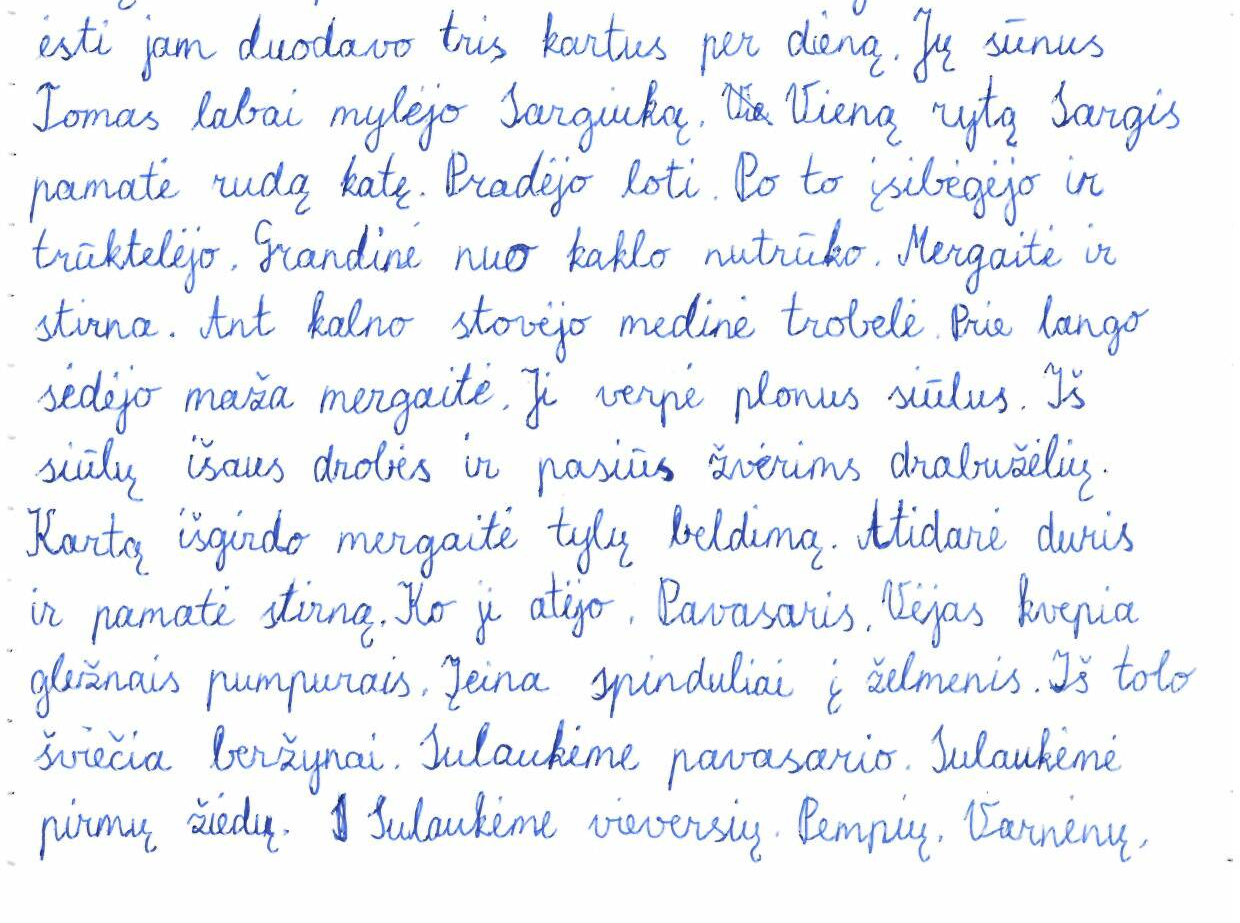 ėsti jam duodavo tris kartus per dieną. Jų sūnus
Tomas labai mylėjo Sargiuką. Vie Vieną rytą Sargis
pamatė rudą katę. Pradėjo loti. Po to įsibėgėjo ir
trūktelėjo. Grandinė nuo kaklo nutrūko. Mergaitė ir
stirna. Ant kalno stovėjo medinė trobelė. Prie lango
sėdėjo maža mergaitė. Ji verpė plonus siūlus. Iš
siūlų išaus drobės ir pasiūs žvėrims drabužėlių.
Kartą išgirdo mergaitė tylų beldimą. Atidarė duris
ir pamatė stirną. Ko ji atėjo. Pavasaris. Vėjas kvepia
gležnais pumpurais. Įeina spinduliai į želmenis. Iš tolo
šviečia beržynai. Sulaukėme pavasario. Sulaukėmė
pirmų žiedų. Sulaukėme vieversių. Pempių. Varnėnų.